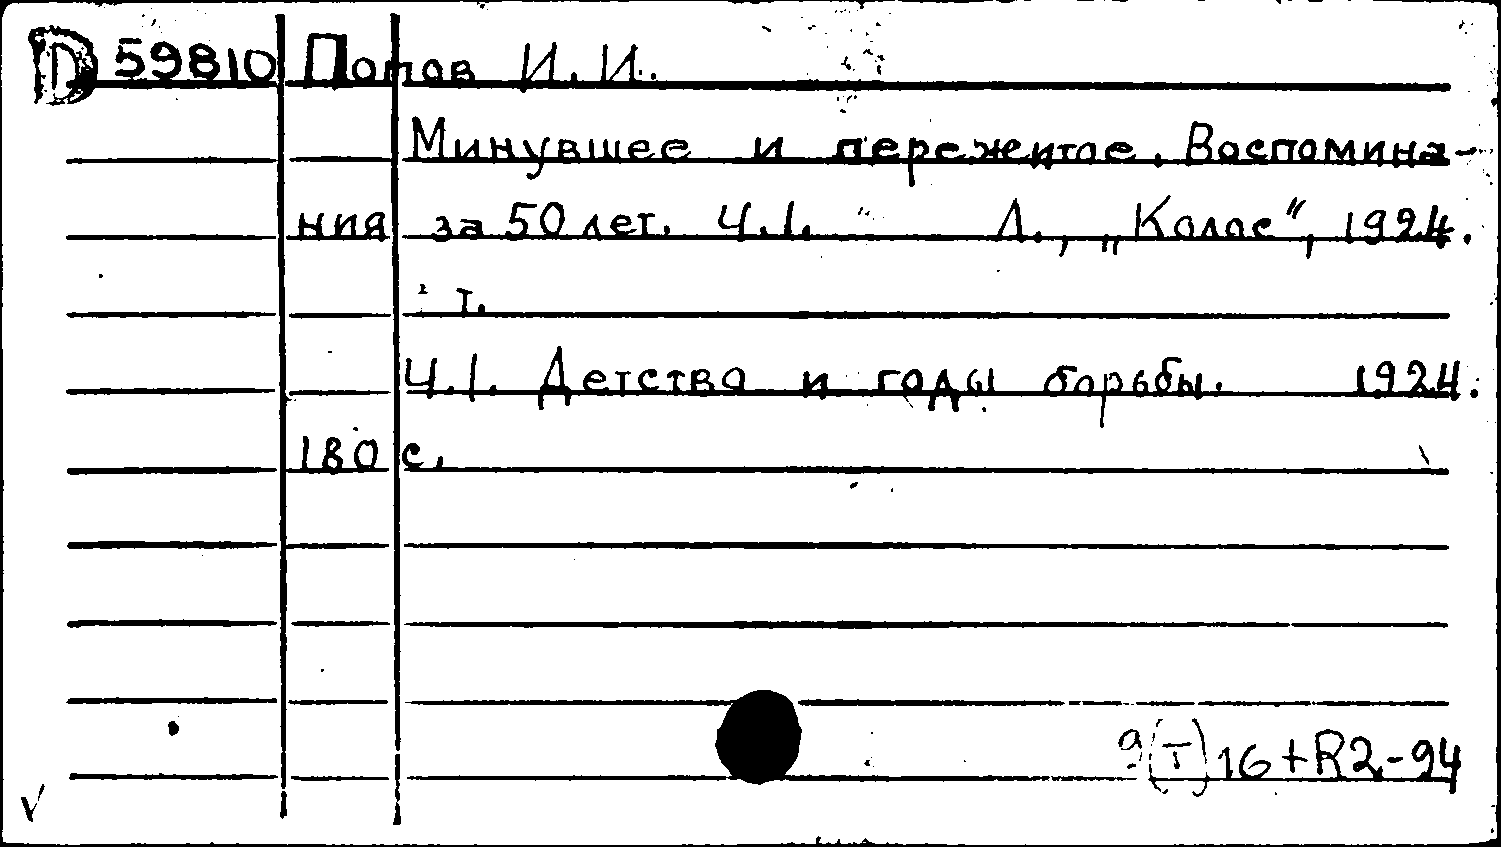 D 59810 Попов И. И.
Минувшее и пережитое. Воспомина-
ния за 50 лет. Ч.1. Л., „Колос“, 1924.
т.
Ч.1. Детство и годы борьбы. 1924.
180 с.
9(Т)16+R2-94